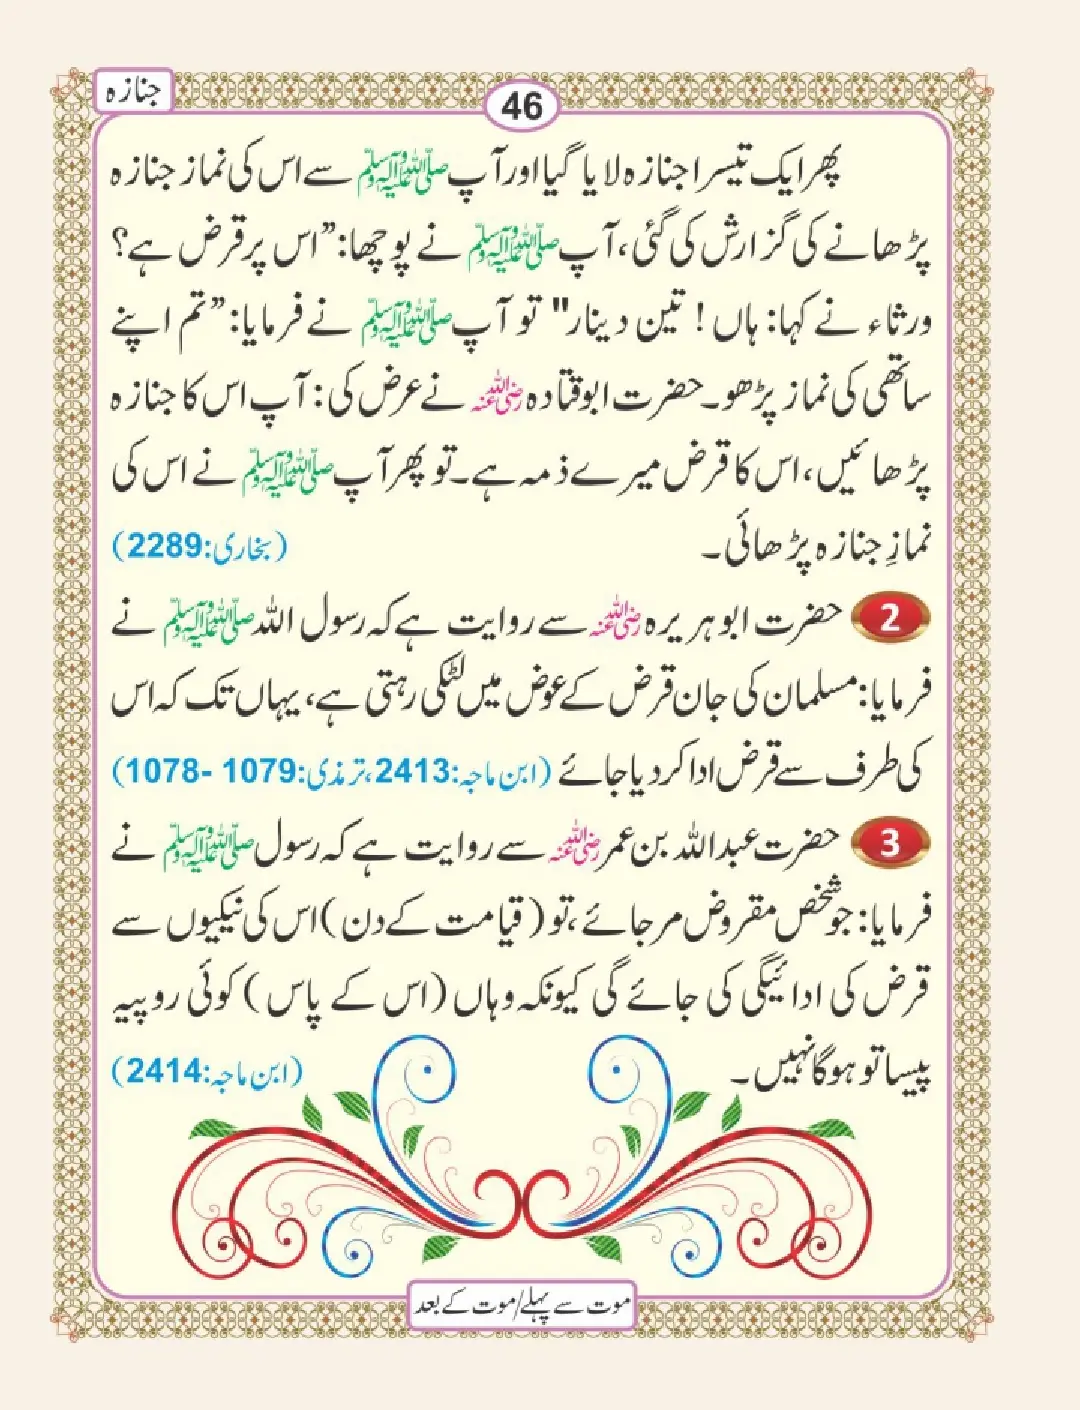 جنازہ
46
پھر ایک تیسرا جنازہ لایا گیا اور آپ ﷺ سے اس کی نماز جنازہ
پڑھانے کی گزارش کی گئی، آپ ﷺ نے پوچھا: ”اس پر قرض ہے؟
ورثاء نے کہا: ہاں! تین دینار" تو آپ ﷺ نے فرمایا: ”تم اپنے
ساتھی کی نماز پڑھو۔ حضرت ابوقتادہ رضی اللہ عنہ نے عرض کی: آپ اس کا جنازہ
پڑھائیں، اس کا قرض میرے ذمہ ہے۔ تو پھر آپ ﷺ نے اس کی
نمازِ جنازہ پڑھائی۔ (بخاری:2289)
2 حضرت ابو ہریرہ رضی اللہ عنہ سے روایت ہے کہ رسول اللہ ﷺ نے
فرمایا: مسلمان کی جان قرض کے عوض میں لٹکی رہتی ہے، یہاں تک کہ اس
کی طرف سے قرض ادا کر دیا جائے (ابن ماجہ:2413، ترمذی:1079 -1078)
3 حضرت عبداللہ بن عمر رضی اللہ عنہ سے روایت ہے کہ رسول ﷺ نے
فرمایا: جو شخص مقروض مر جائے، تو (قیامت کے دن) اس کی نیکیوں سے
قرض کی ادائیگی کی جائے گی کیونکہ وہاں (اس کے پاس) کوئی روپیہ
پیسا تو ہوگا نہیں۔ (ابن ماجہ:2414)
موت سے پہلے/موت کے بعد